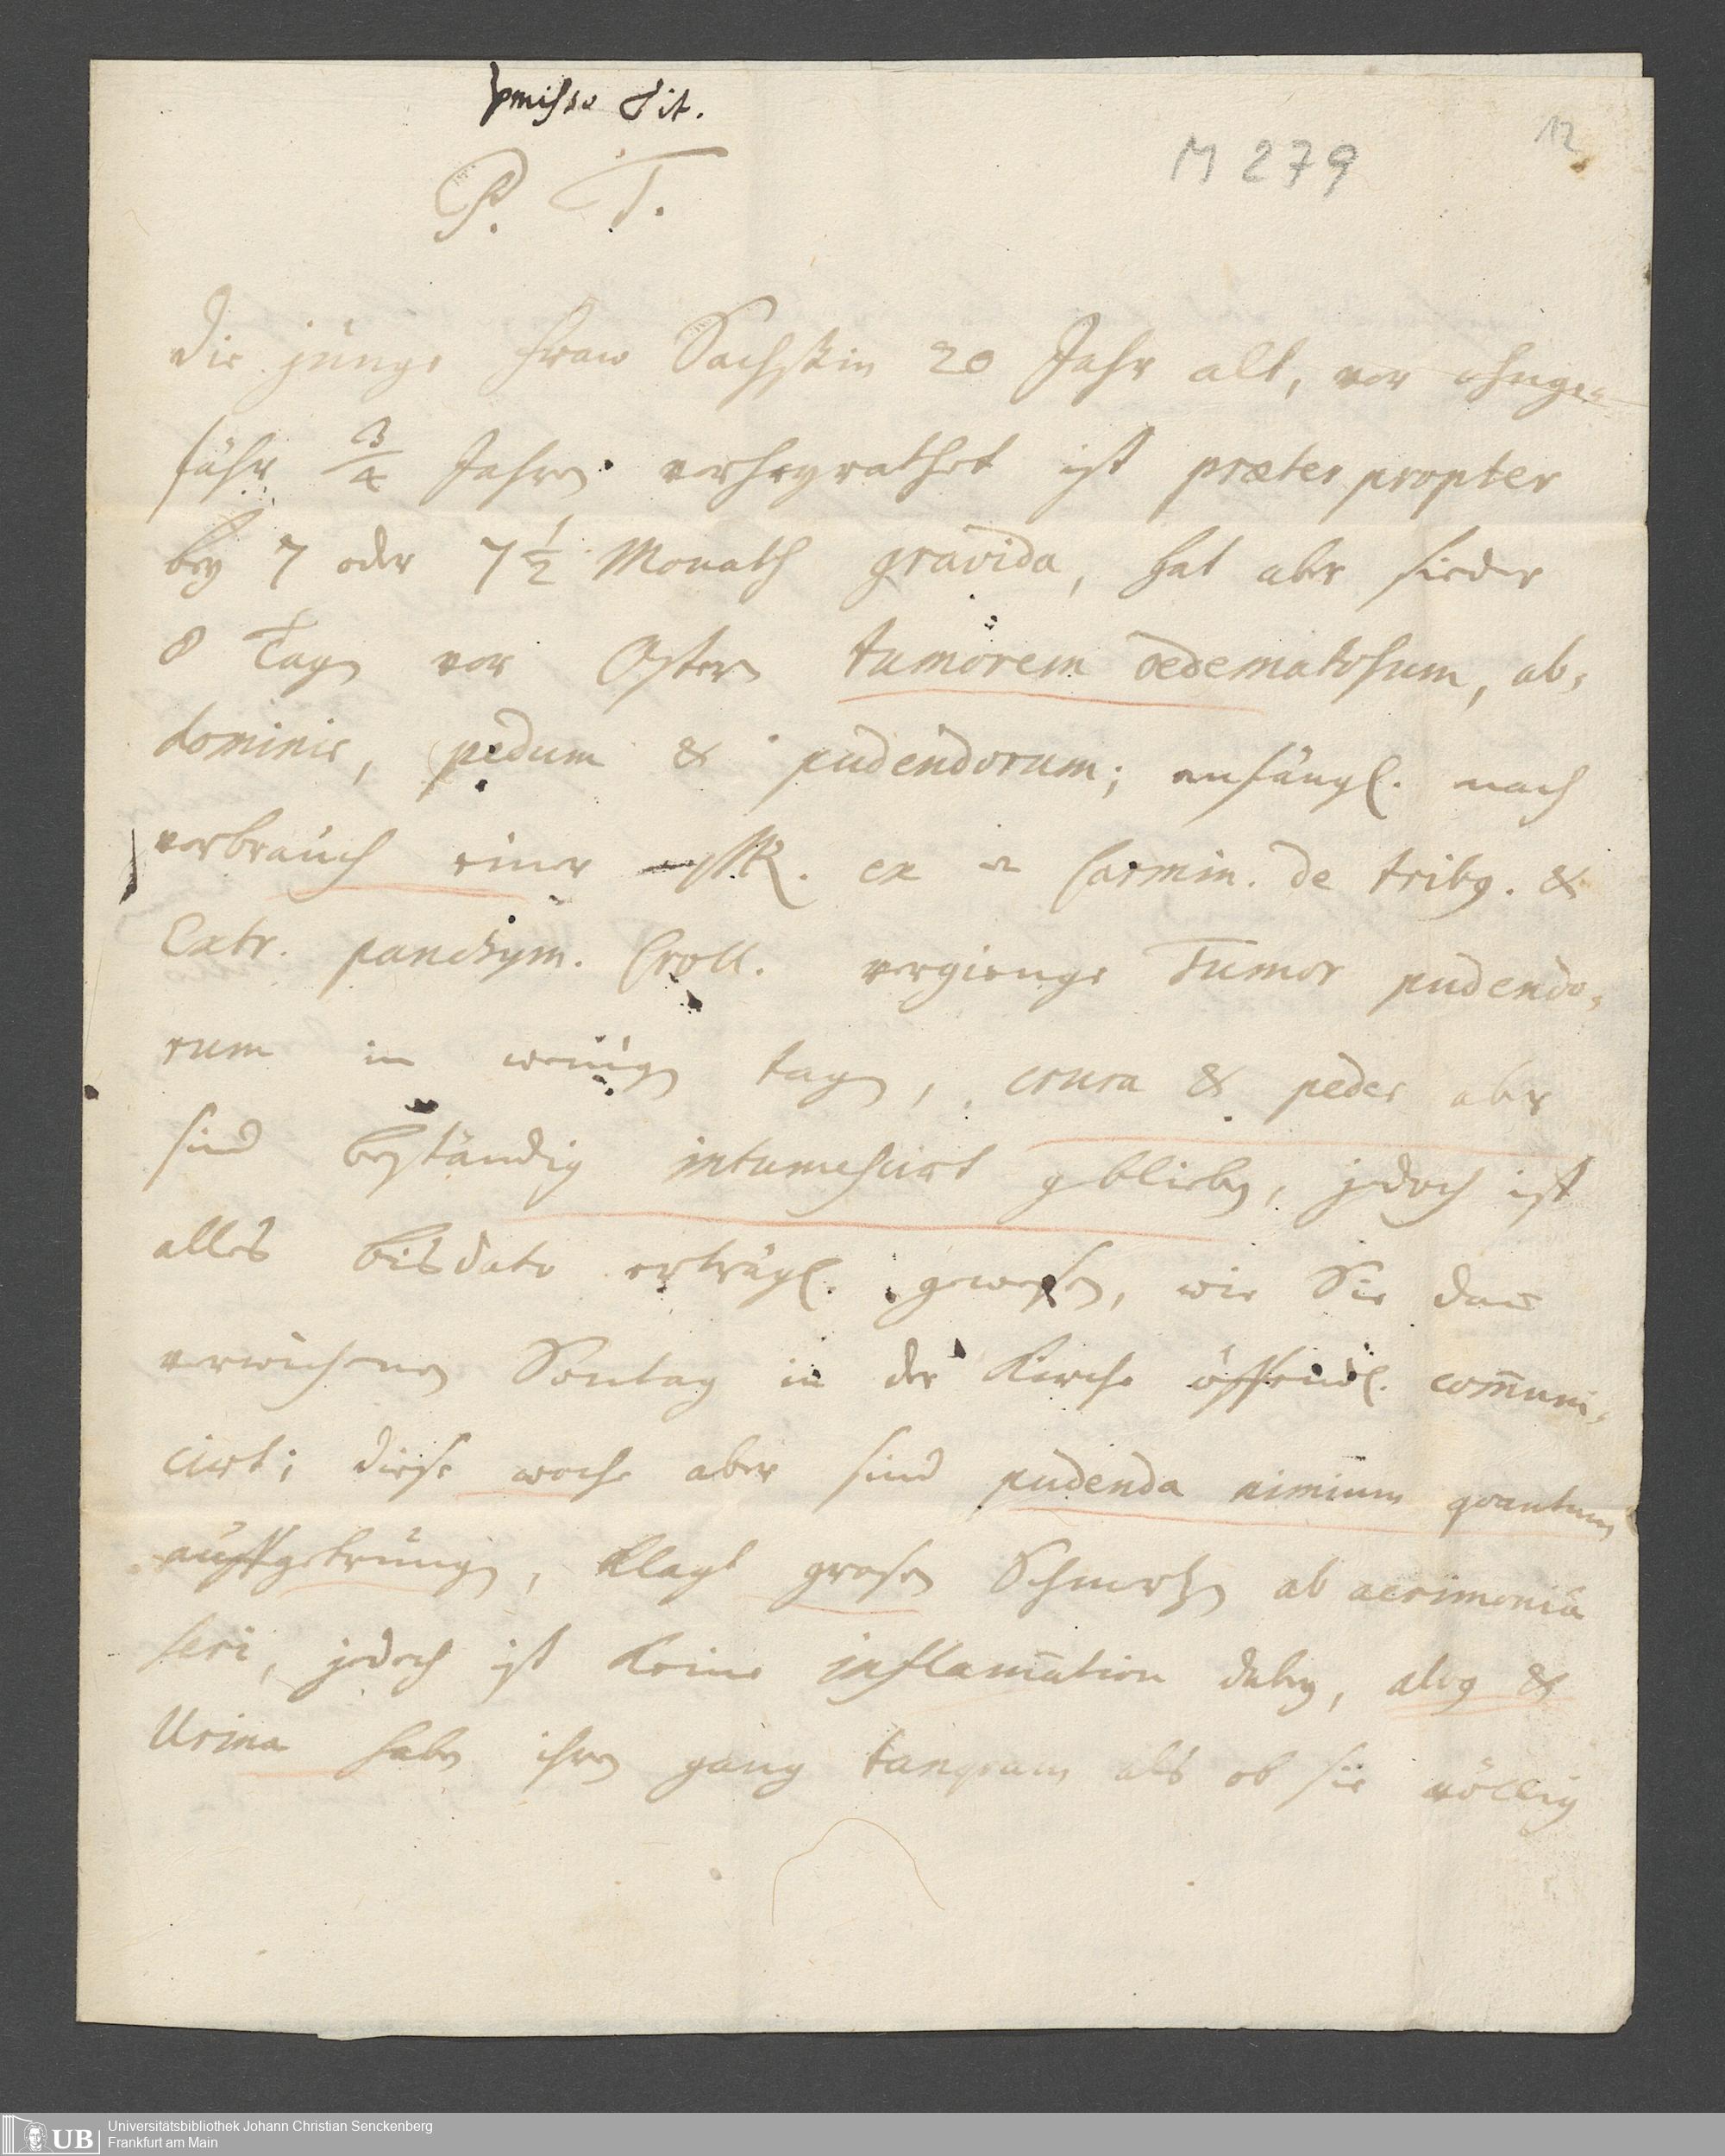 pmisso Tit.
M 279
12
P. T.
die junge Fraw Sachssin 20 Jahr alt, vor ohnge=
fähr 3/4 Jahren verheyrathet ist præter propter
bey 7 oder 7 1/2 Monath gravida, hat aber sieder
8 Tagen vor Ostern tumorem oedematosum, ab=
dominis, pedum & pudendorum; anfängl. nach
verbrauch einer ex Carmin. de tribg. &
Extr. panchym. Croll. vergienge Tumor pudendo=
rum in wenigen tagen, crura & pedes aber
sind beständig intumescirt geblieben, jedoch ist
alles bisdato erträgl. gewesen, wie Sie dan̄
verwichenen Sontag in der Kirche öffendl. com̄uni=
cirt; diese woche aber sind pudenda nimium quantum
auffgetrungen, klagt grosen Schmertzen ab acrimoniâ
seri, jedoch ist keine inflam̄ation dabey, alvg &
Urina haben ihren gang tanquam als ob sie völlig
UB
Universitätsbibliothek Johann Christian Senckenberg
Frankfurt am Main